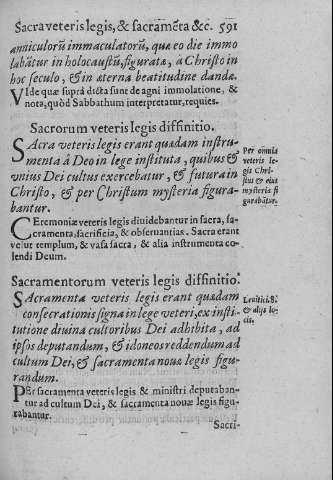 Sacra veteris legis, & sacramēta &c. 591
anniculorū immaculatorū, quæ eo die immo
labātur in holocaustū, figurata, a Christo in
hoc seculo, & in æterna beatitudine dandæ.
VIde quæ suprà dicta sunt de agni immolatione, &
nota, quòd Sabbathum interpretatur, requies.
Sacrorum veteris legis diffinitio.
SAcra veteris legis erant quædam instru-
menta à Deo in lege instituta, quibus &
vnius Dei cultus exercebatur, & futura in
Christo, & per Christum mysteria figura-
bantur.
Per omnia
veteris le-
gis Chri-
stus & eius
mysteria fi
gurabātur.
CEremoniæ veteris legis diuidebantur in sacra, sa-
cramenta, sacrificia, & obseruantias. Sacra erant
velut templum, & vasa sacra, & alia instrumenta co-
lendi Deum.
Sacramentorum veteris legis diffinitio.
SAcramenta veteris legis erant quædam
consecrationis signa in lege veteri, ex insti-
tutione diuina cultoribus Dei adhibita, ad
ipsos deputandum, & idoneos reddendum ad
cultum Dei, & sacramenta nouæ legis figu-
randum.
Leuitici. 8.
& alijs lo-
cis.
PEr sacramenta veteris legis & ministri deputaban-
tur ad cultum Dei, & sacramenta nouæ legis figu-
rabantur.
Sacri-